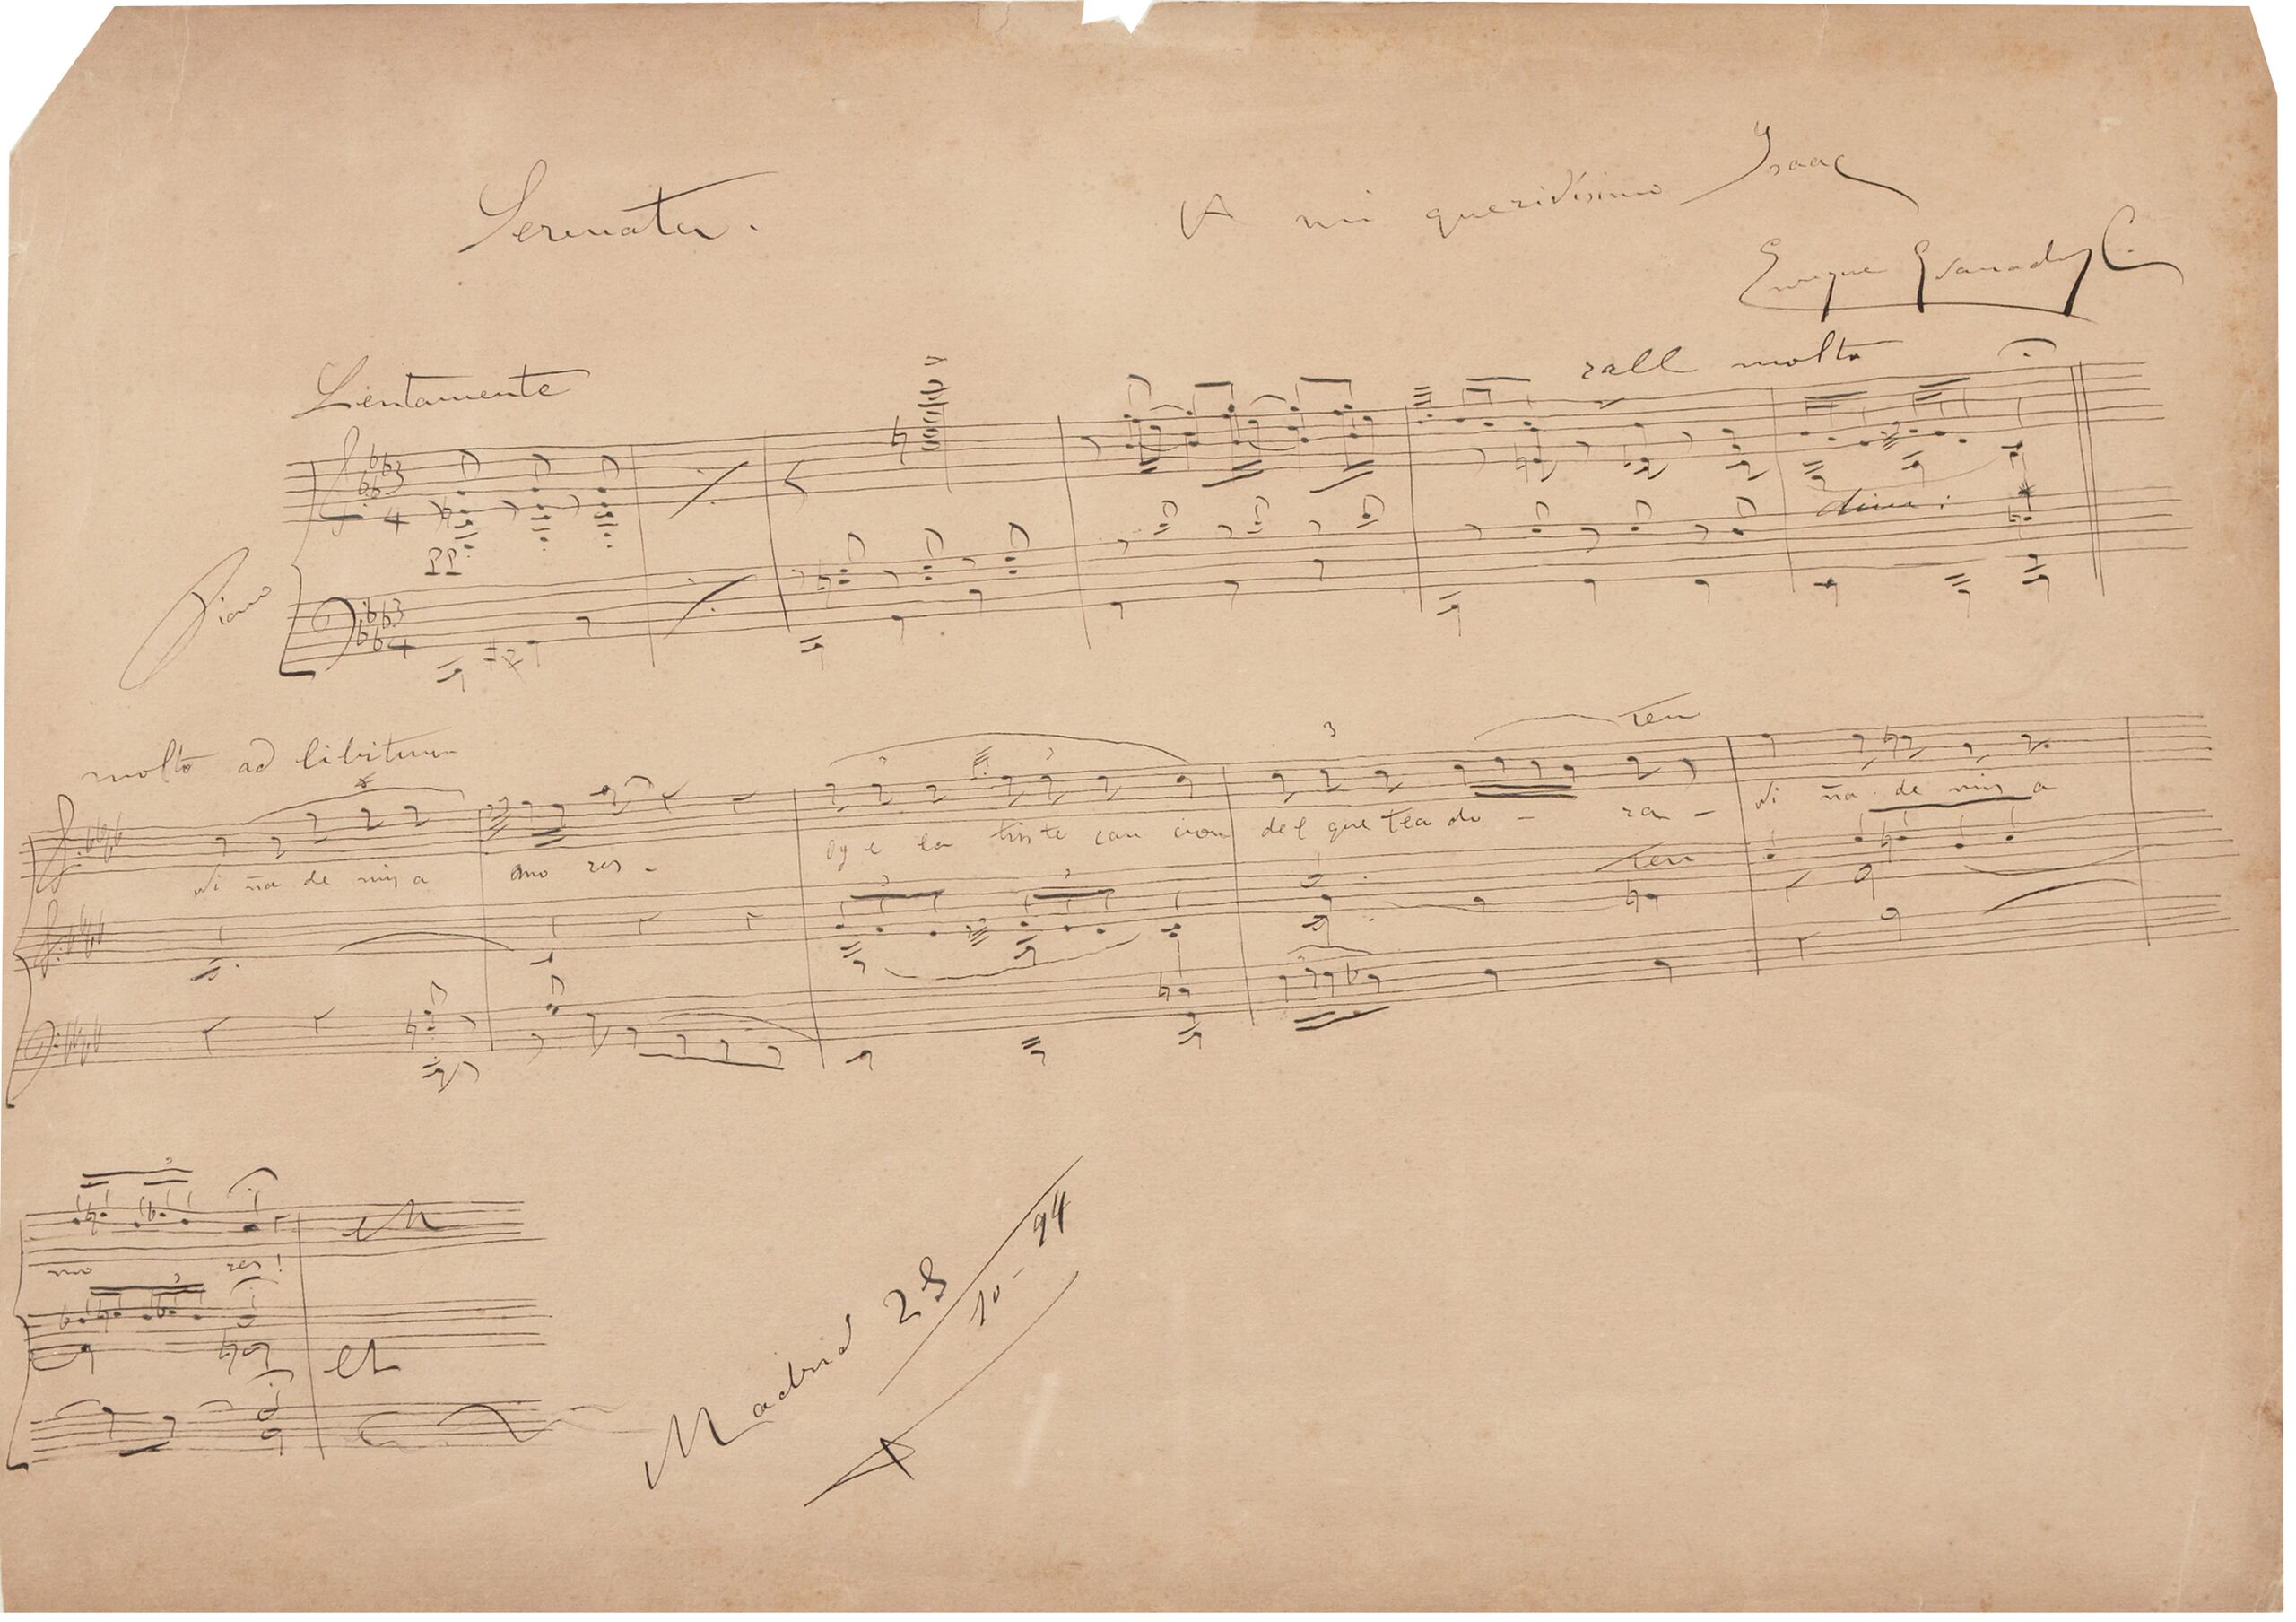 Serenata. A mi queridísimo Isaac
Enrique Granados C.
Lentamente rall molto
3 4
PP
dim:
Piano
3 4
molto ad libitum
3 3 3 ten
Ni ña de mis a mo res - oy e la tris te can cion del que tea do - ra - Ni ña de mis a
ten
3 3
3
mo res!
3
Madrid 25/10-94